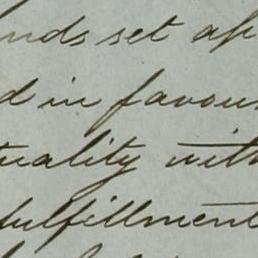 nds set ap
d in favour
tuality with
fulfillment